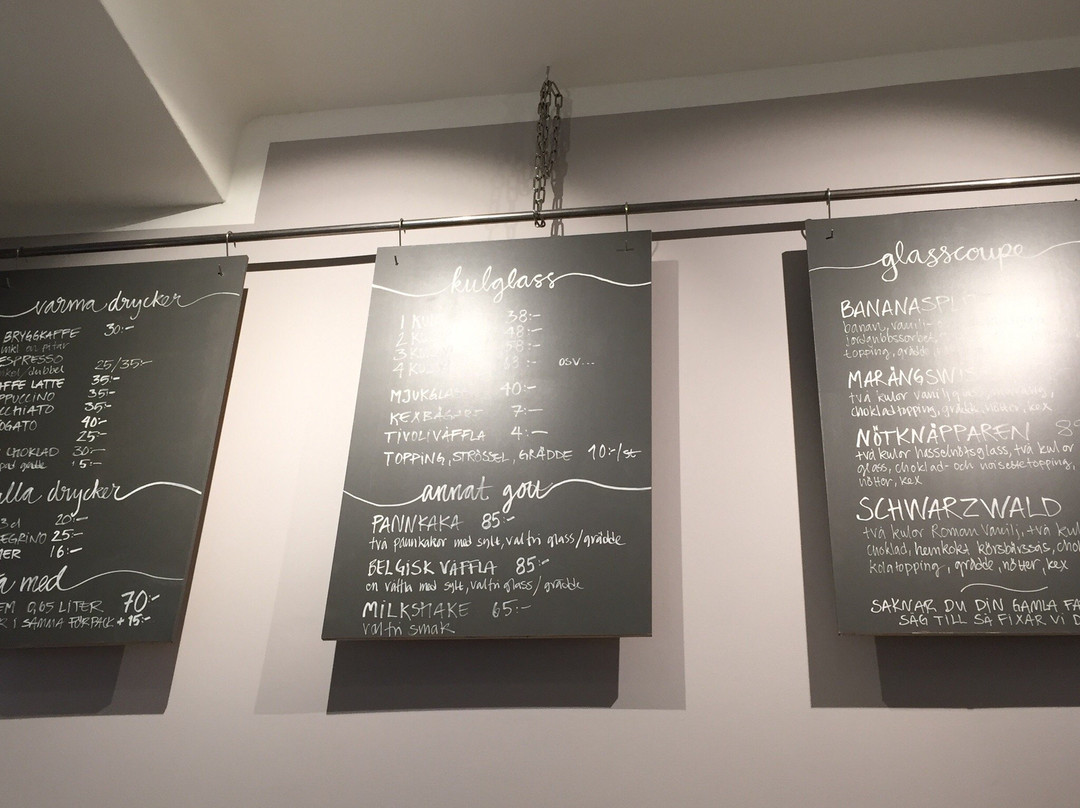 varma drycker
BRYGGKAFFE 30:-
inkl en påtår
ESPRESSO
enkel/dubbel 25/35:-
AFFE LATTE 35:-
PPUCCINO 35:-
CCHIATO 35:-
OGATO 40:-
25:-
CHOKLAD 30:-
grädde 5:-
lla drycker
3 cl 20:-
EGRINO 25:-
MER 16:-
a med
EM 0,65 LITER 70:-
R I SAMMA FÖRPACK + 15:-
kulglass
1 KU 38:-
2 K 48:-
3 K 58:-
4 KUL OSV...
MJUKGLA 40:-
KEXBÄGARE 7:-
TIVOLIVÅFFLA 4:-
TOPPING, STRÖSSEL, GRÄDDE 10:-/st
annat gott
PANNKAKA 85:-
två pannkakor med sylt, valfri glass/grädde
BELGISK VÅFFLA 85:-
en våffla med sylt, valfri glass/grädde
MILKSHAKE 65:-
valfri smak
glasscoupe
BANANASPL
banan, vanilj-
jordgubbssorbet
topping, grädde
MARÄNGSW
två kulor vanilj
chokladtopping, grädde, nötter, kex
NÖTKNÄPPAREN
två kulor hasselnötsglass, två kulor
glass, choklad- och noisettetopping,
nötter, kex
SCHWARZWALD
två kulor Roman Vanilj, två kul
choklad, hemkokt körsbärssås, cho
kolatopping, grädde, nötter, kex
SAKNAR DU DIN GAMLA FA
SÄG TILL SÅ FIXAR VI D